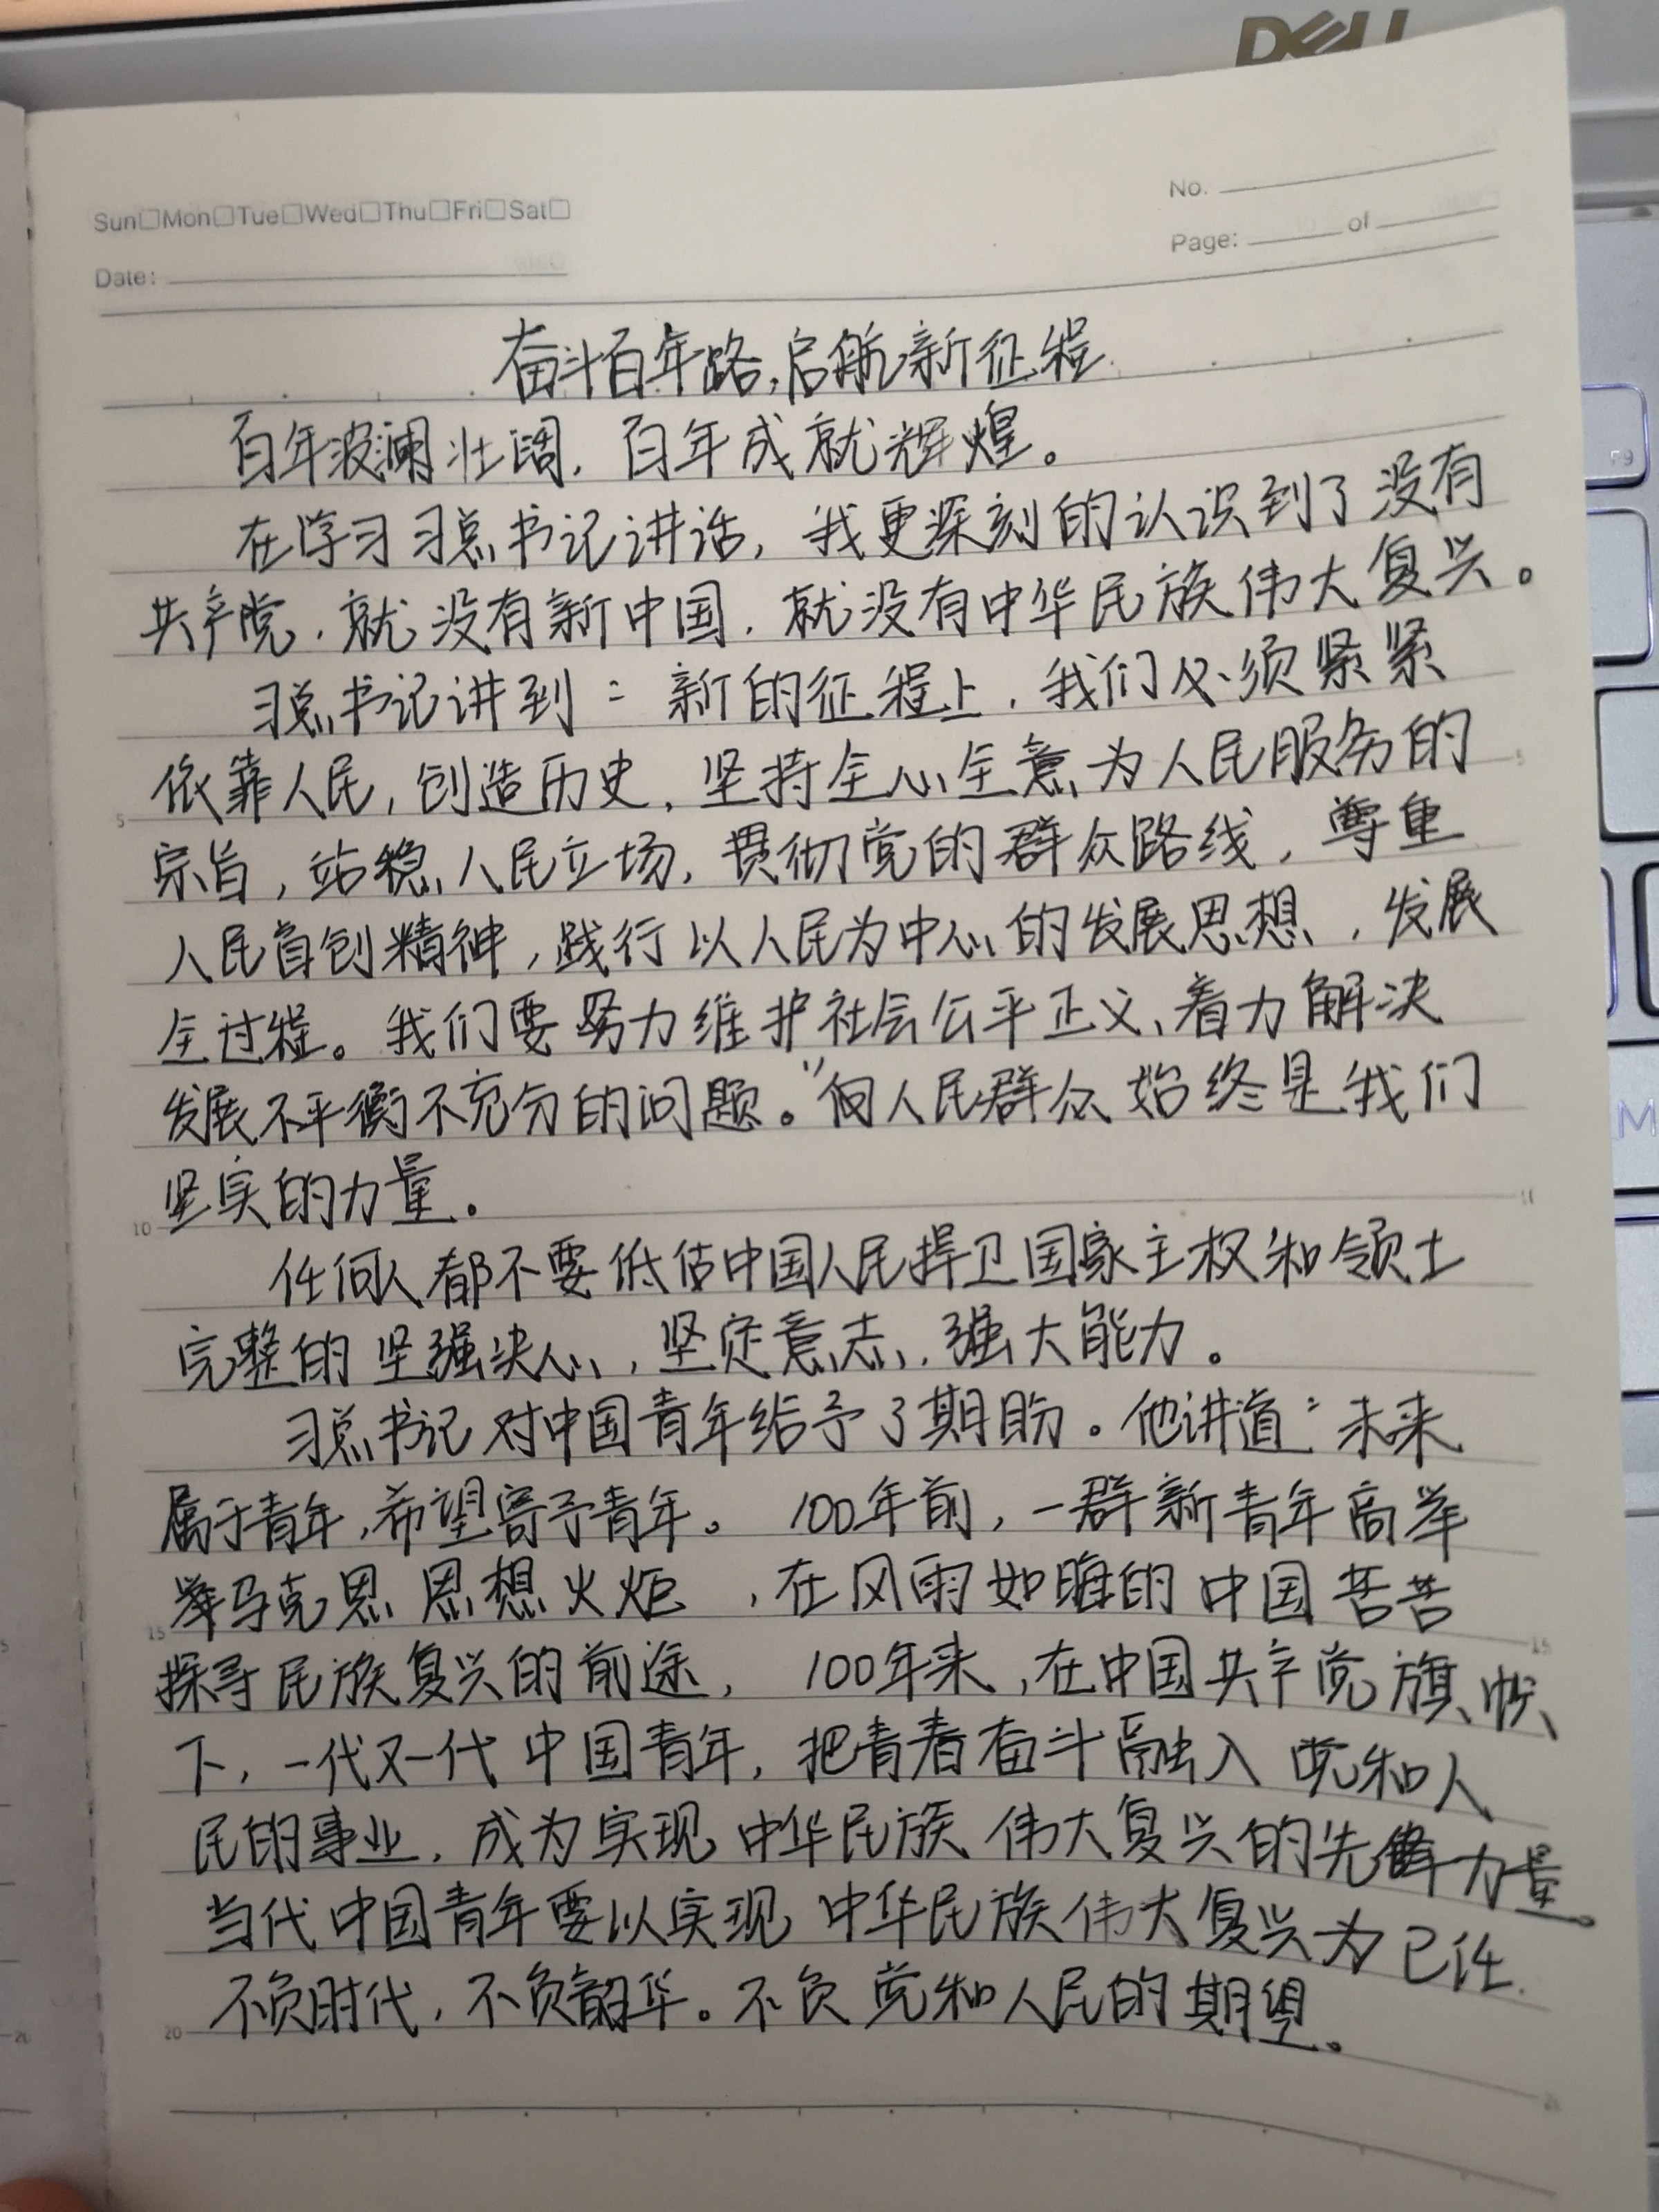 DELL
Sun□Mon□Tue□Wed□Thu□Fri□Sat□
No.
Page: of
Date:
奋斗百年路,启航新征程
百年波澜壮阔,百年成就辉煌。
在学习习总书记讲话,我更深刻的认识到了没有
共产党,就没有新中国,就没有中华民族伟大复兴。
习总书记讲到:新的征程上,我们必须紧紧
依靠人民,创造历史,坚持全心全意为人民服务的
5
宗旨,站稳人民立场,贯彻党的群众路线,尊重
人民首创精神,践行以人民为中心的发展思想,发展
全过程。我们要努力维护社会公平正义、着力解决
发展不平衡不充分的问题。"但人民群众始终是我们
坚实的力量。
10
任何人都不要低估中国人民捍卫国家主权和领土
完整的坚强决心,坚定意志,强大能力。
习总书记对中国青年给予了期盼。他讲道:未来
属于青年,希望寄予青年。100年前,一群新青年高举
举马克思思想火炬,在风雨如晦的中国苦苦
15
探寻民族复兴的前途,100年来,在中国共产党旗帜
下,一代又一代中国青年,把青春奋斗融入党和人
民的事业,成为实现中华民族伟大复兴的先锋力量。
当代中国青年要以实现中华民族伟大复兴为己任.
不负时代,不负韶华。不负党和人民的期望。
20
F9
M